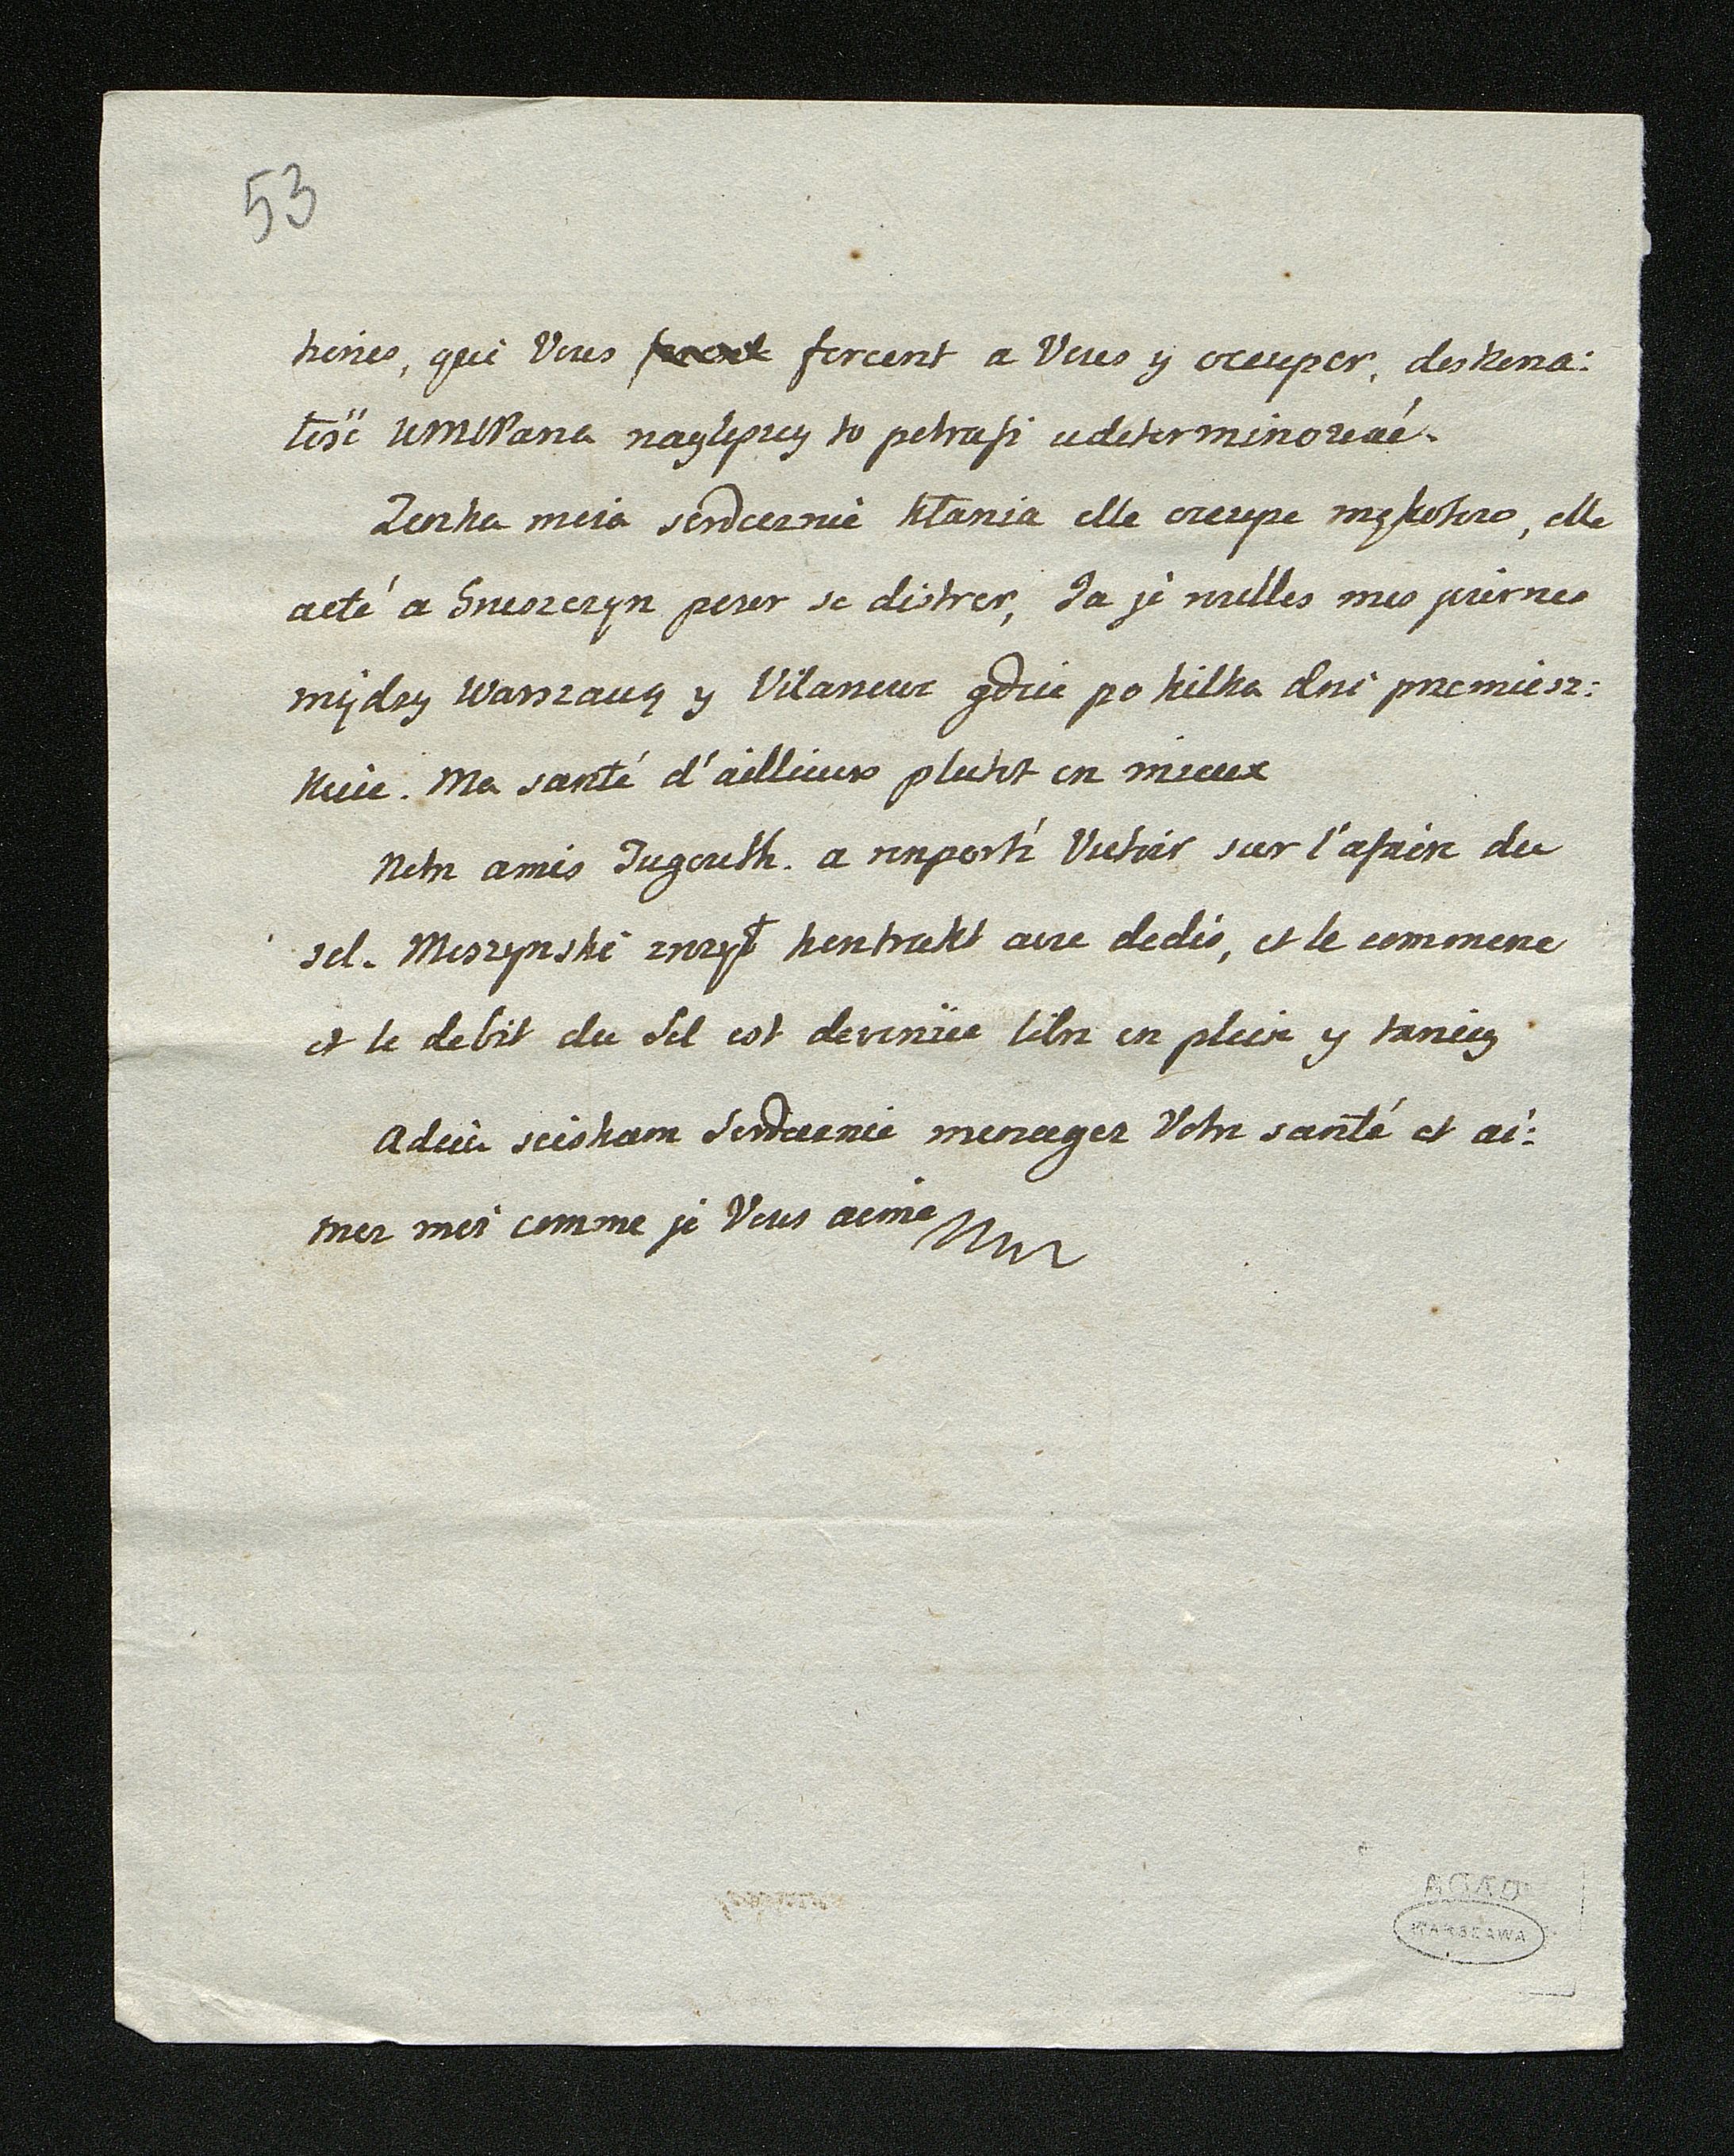 53
tries, qui Vous forcent a Vous y occuper, doskona:
łość WMWPana naylepiey to potrafi udeterminować.
Zonka moia serdecznie kłania elle occupe mąkotow, elle
aeté a Gneszczyn pour se distrer, Ja je roulles mes joirnes
między Warszawą y Vilanow gdzie po kilka dni przemiesz:
kuie. Ma santé d'ailleurs plutot en mieux
Notre amis Jugouth. a renporté Victoir sur l'afaire du
sel. Moszynski znozył kontrakt avec dedis, et le commerce
et le debit du Sel est devenüe libre en plein y taniey
Adieu sciskam Serdecznie menagez Votre santé et ai:
mez moi comme je Vous aime
AGAD
WARSZAWA